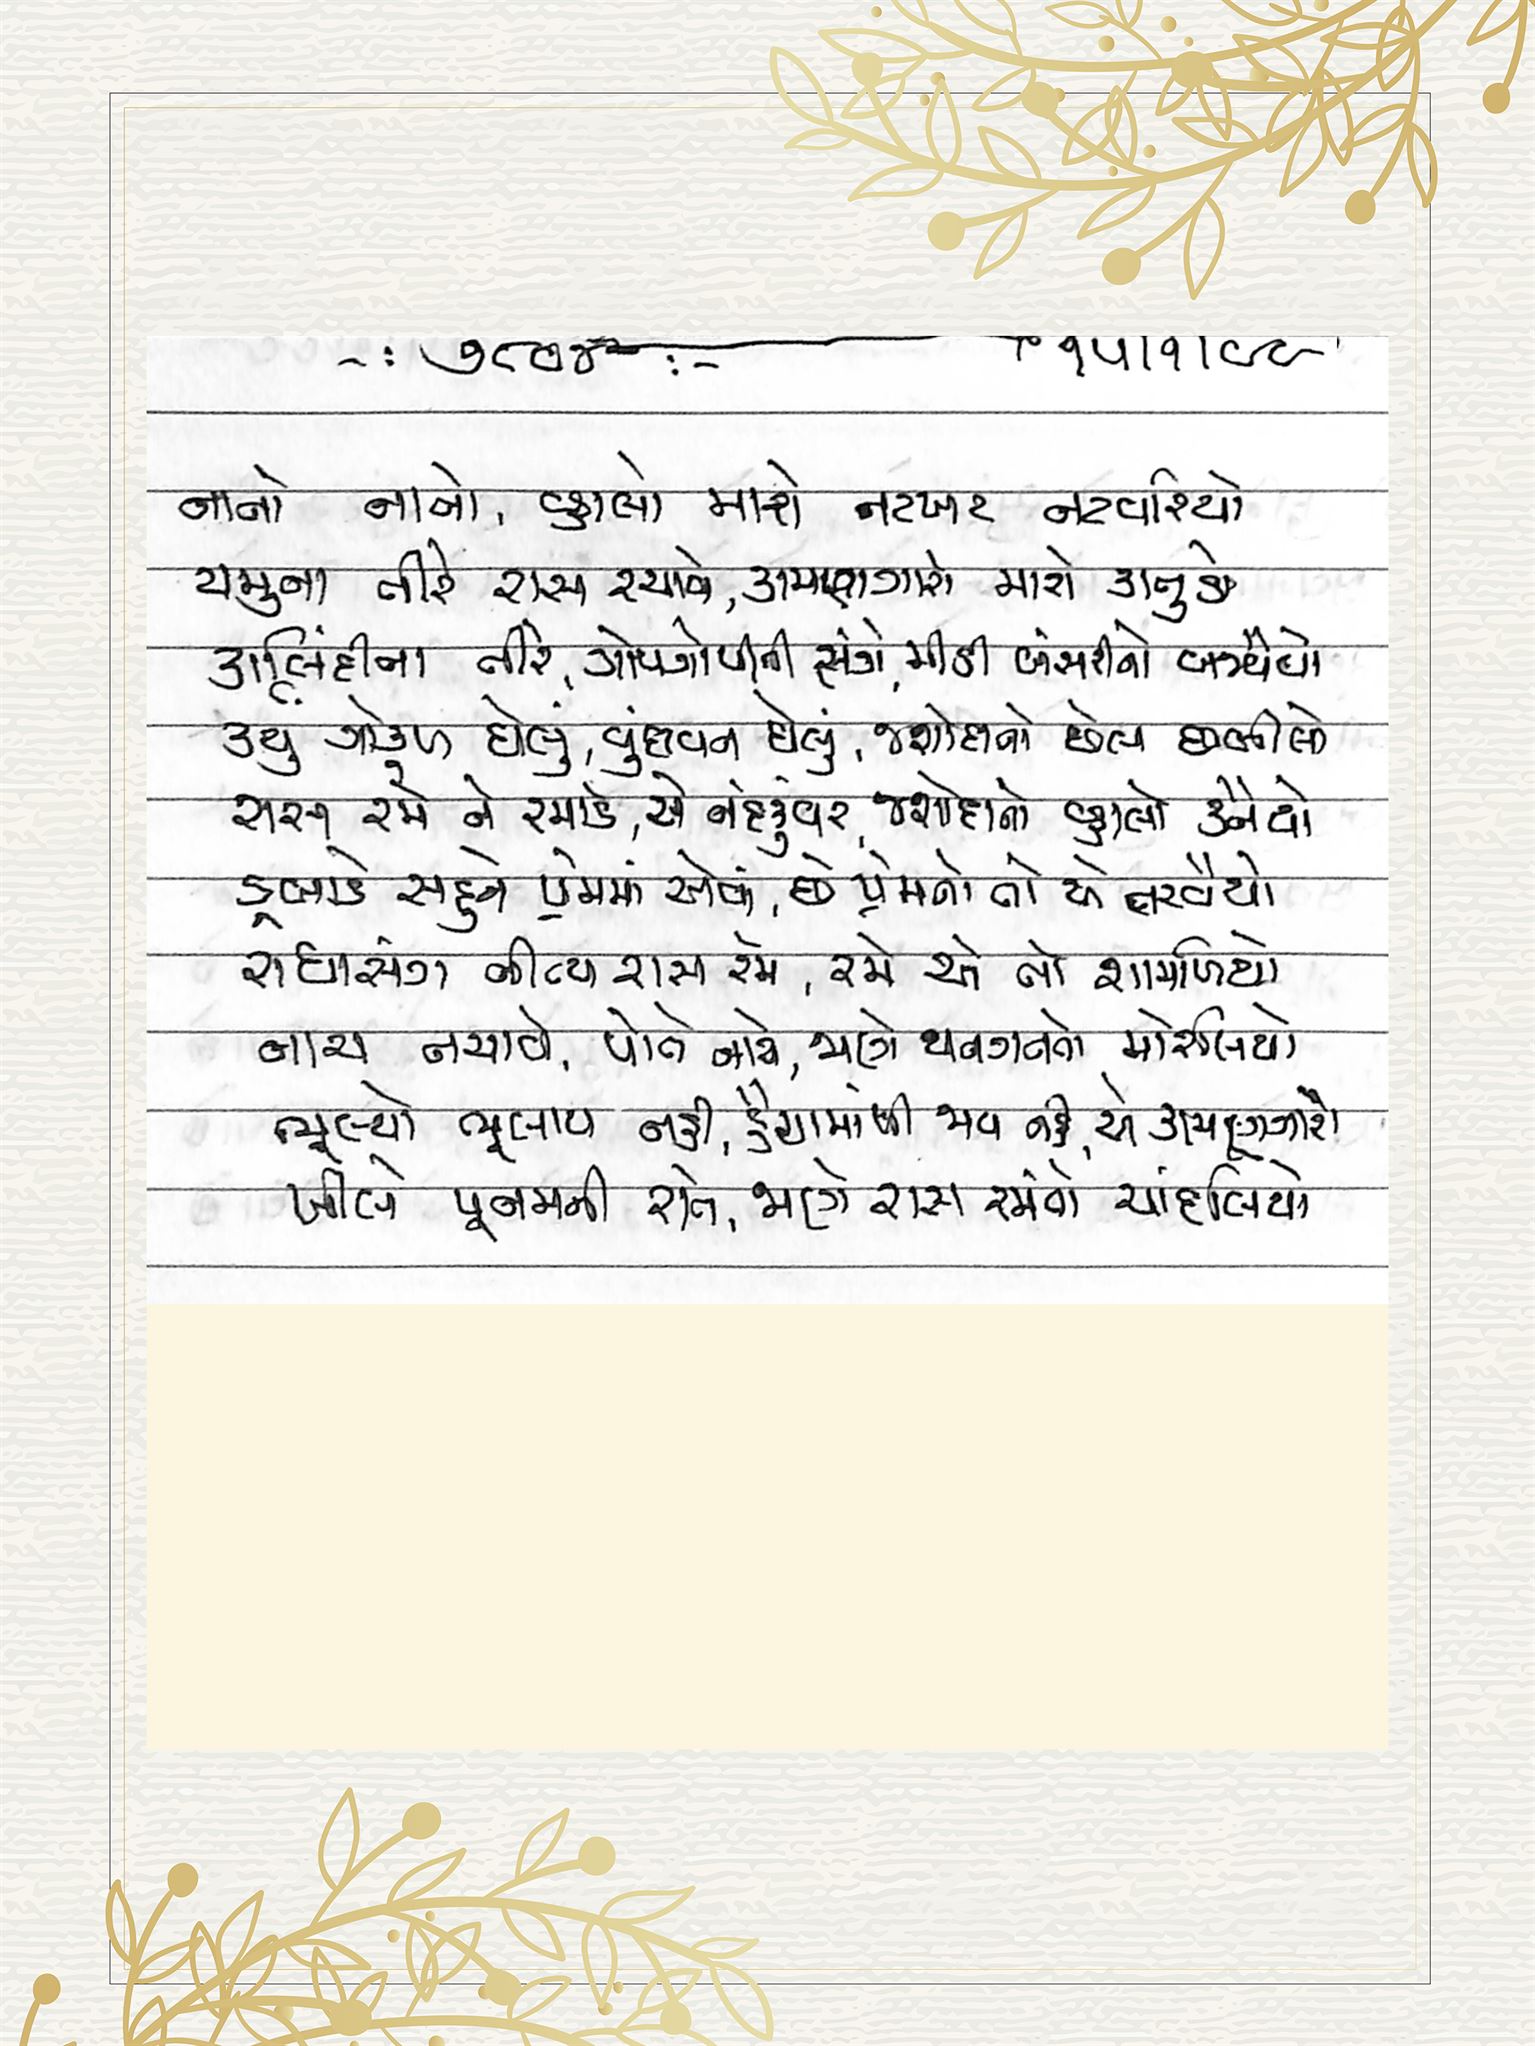 ૧૫/૧/૯૯
નાનો નાનો, વ્હાલો મારો નટખટ નટવરિયો
યમુના તીરે રાસ રચાવે, કામણગારો મારો કાનુડો
કાલિંદીના તીરે, ગોપગોપીની સંગે, મીઠી બંસરીનો બજૈયો
કર્યું ગોકુળ ઘેલું, વૃંદાવન ઘેલું, જશોદાનો છેલ છબીલો
રાસ રમે ને રમાડે, એ નંદકુંવર, જશોદાનો વ્હાલો કનૈયો
ડૂબાડે સહુને પ્રેમમાં એવો, છે પ્રેમનો તો એ તરવૈયો
રાધાસંગ નીત્ય રાસ રમે, રમે એ તો શામળિયો
નાચ નચાવે, પોતે નાચે, જાણે થનગનતો મોરલિયો
ભૂલ્યો ભૂલાય નહી, હૈયામાંથી જાય નહી, એ કામણગારો
ખીલે પૂનમની રાતે, જાણે રાસ રમતો ચાંદલિયો